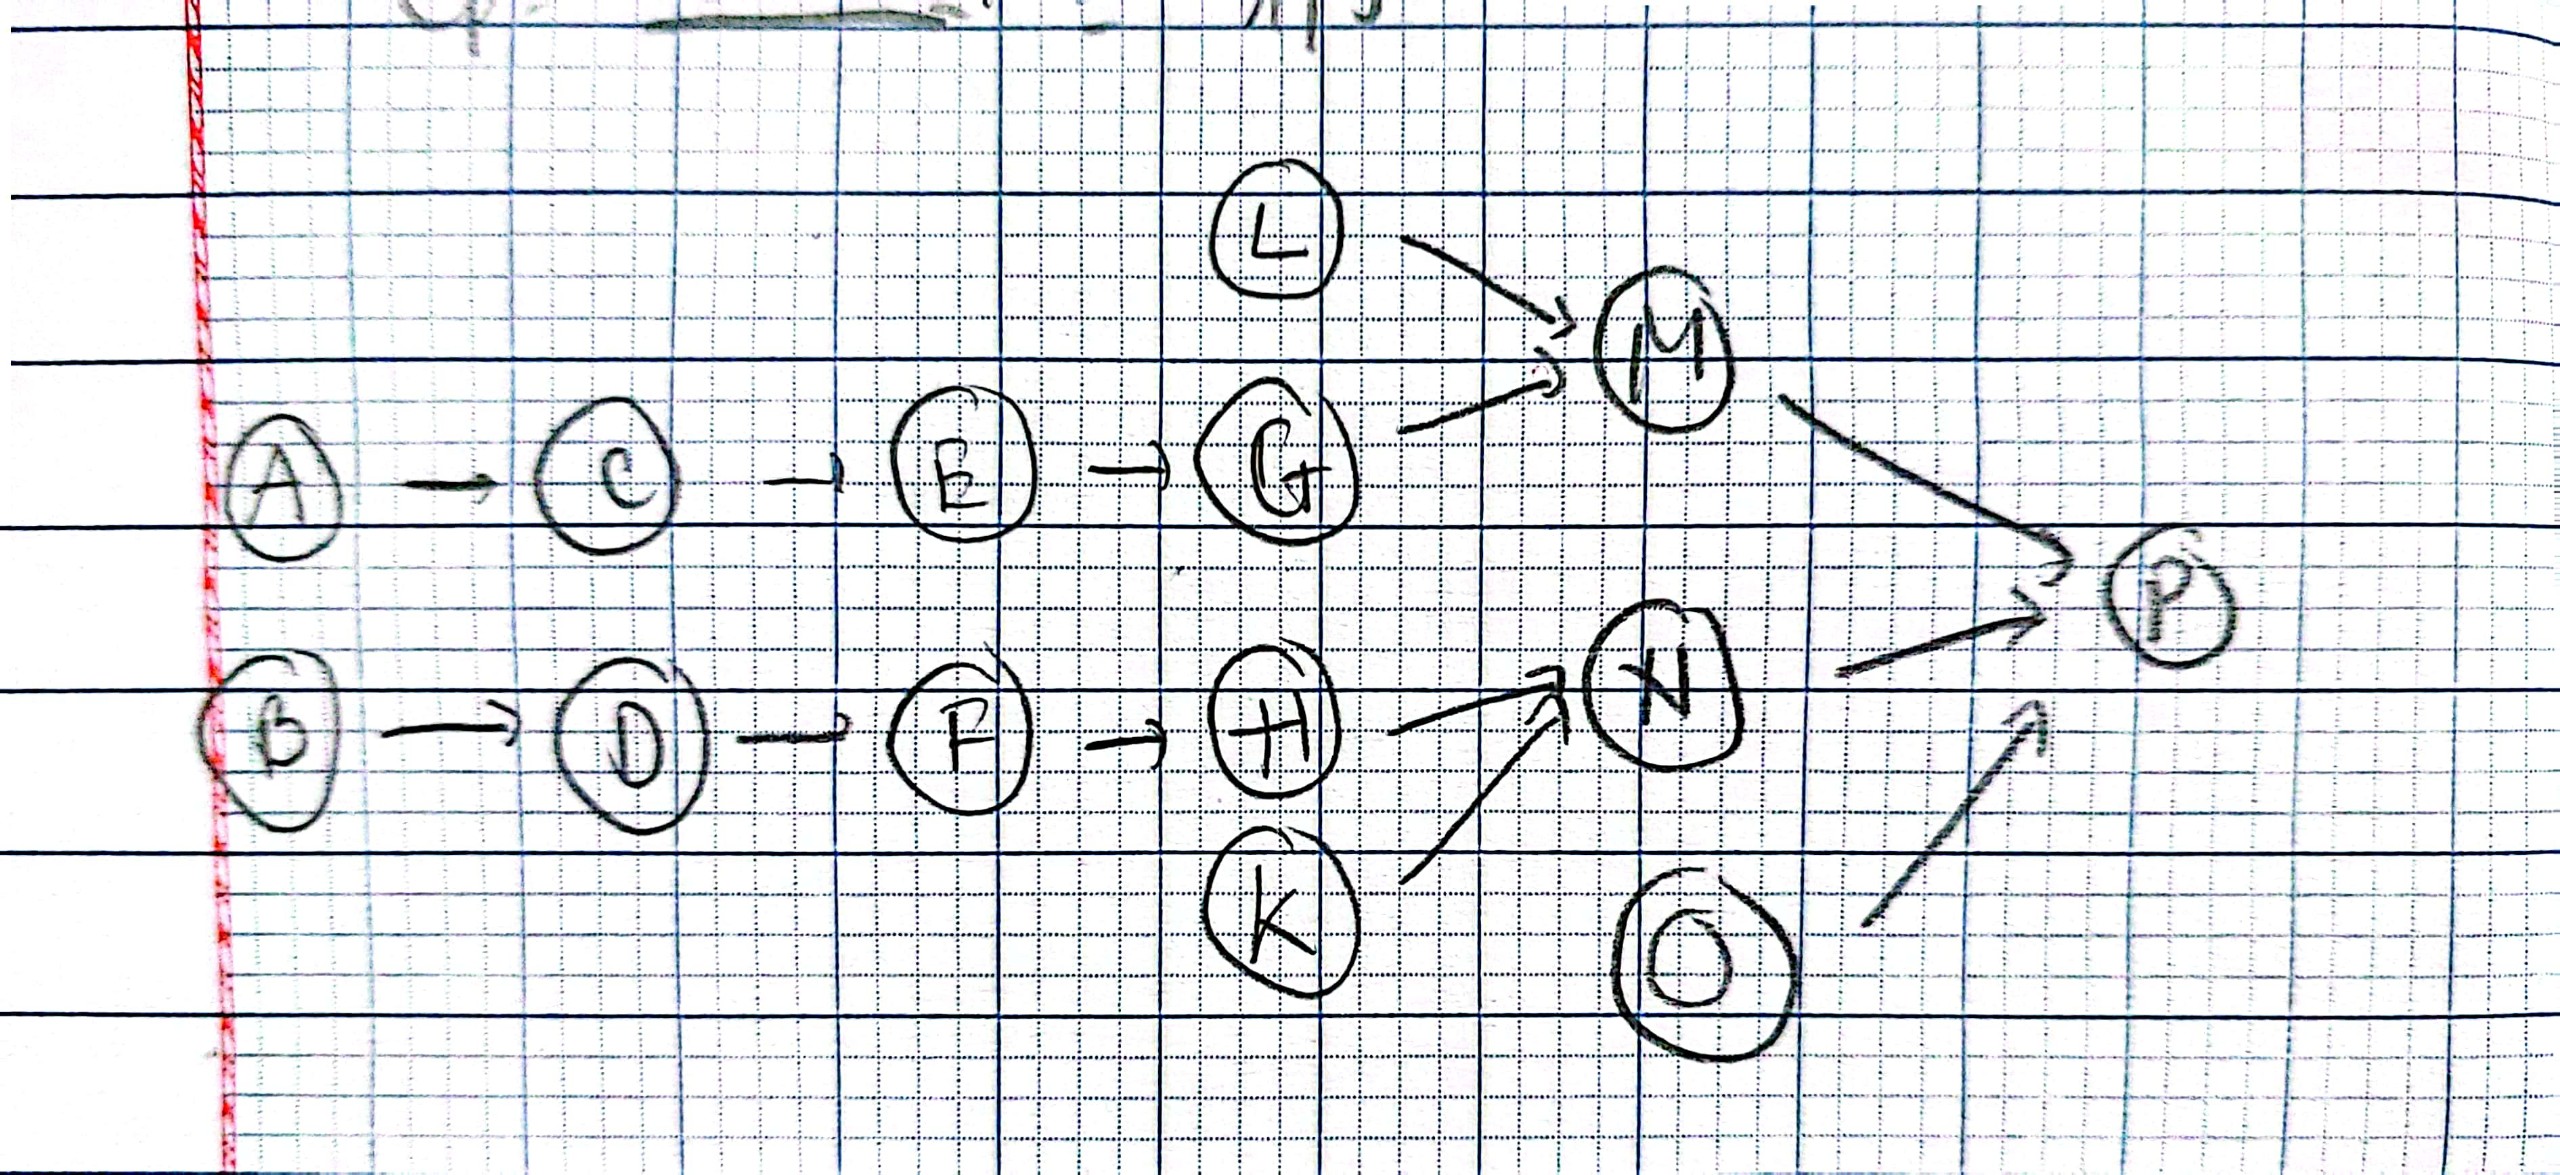 L
M
A → C → E → G
P
B → D → F → H
N
K
O